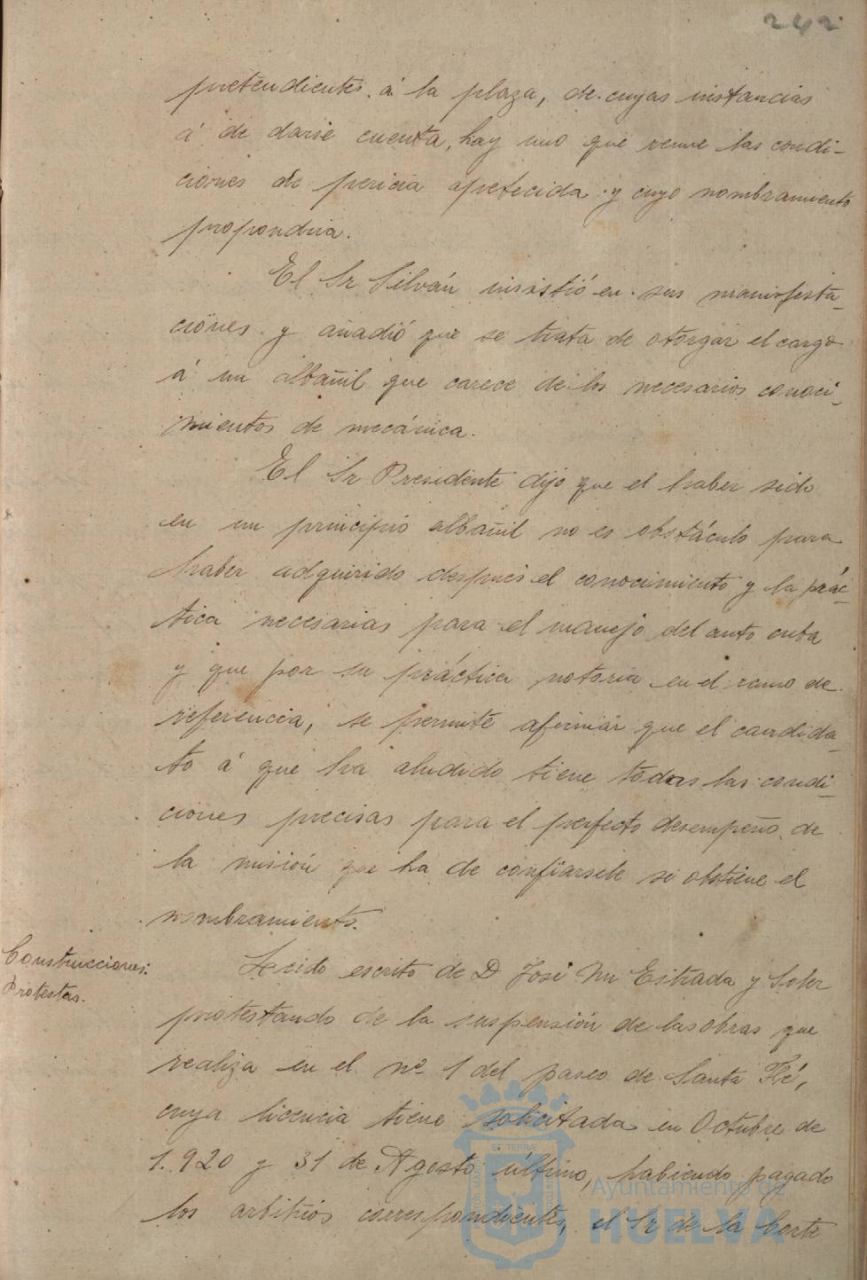 242
pretendientes á la plaza, de cuyas instancias
á de darse cuenta, hay uno que reune las condi-
ciones de pericia apetecida y cuyo nombramiento
propondria.
El Sr Silván insistió en sus manifesta-
ciones y añadió que se trata de otorgar el cargo
á un albañil que carece de los necesarios conoci-
mientos de mecánica.
El Sr Presidente dijo que el haber sido
en un principio albañil no es obstáculo para
haber adquirido después el conocimiento y la prác-
tica necesarias para el manejo del auto cuba
y que por su práctica notoria en el ramo de
referencia, se permite afirmar que el candida-
to á que ha aludido tiene todas las condi-
ciones precisas para el perfecto desempeño de
la misión que ha de confiarsele si obtiene el
nombramiento.
Construcciones.
Protestas.
Leido escrito de D José Mª Estrada y Soler
protestando de la suspensión de las obras que
realiza en el nº 1 del paseo de Santa Fé,
cuya licencia tiene solicitada en Octubre de
1.920 y 31 de Agosto último, habiendo pagado
los arbitrios correspondientes, el Sr de la Corte
Ayuntamiento de
HUELVA